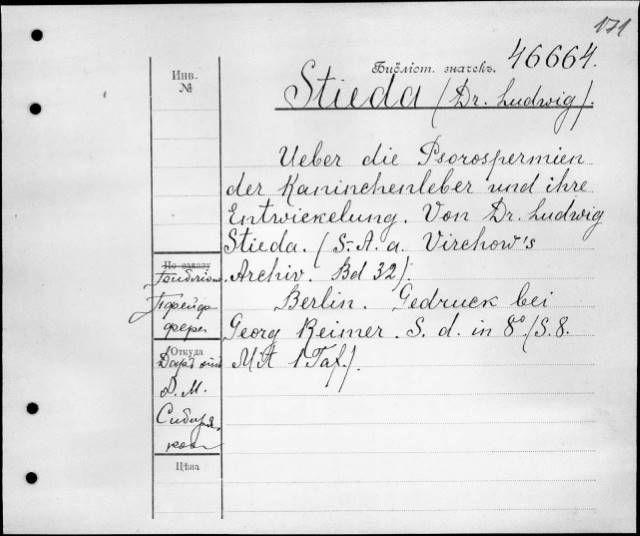 171
Инв. №
Библіот. значекъ. 46664.
Stieda (Dr. Ludwig).
Ueber die Psorospermien
der Kaninchenleber und ihre
Entwickelung. Von Dr. Ludwig
Stieda. (S.-A. a. Virchow's
Archiv. Bd 32).
Berlin. Gedruck bei
Georg Reimer. S. d. in 8° (S. 8.
Mit 1 Taf.).
По заказу
Откуда
Д. М.
Цѣна